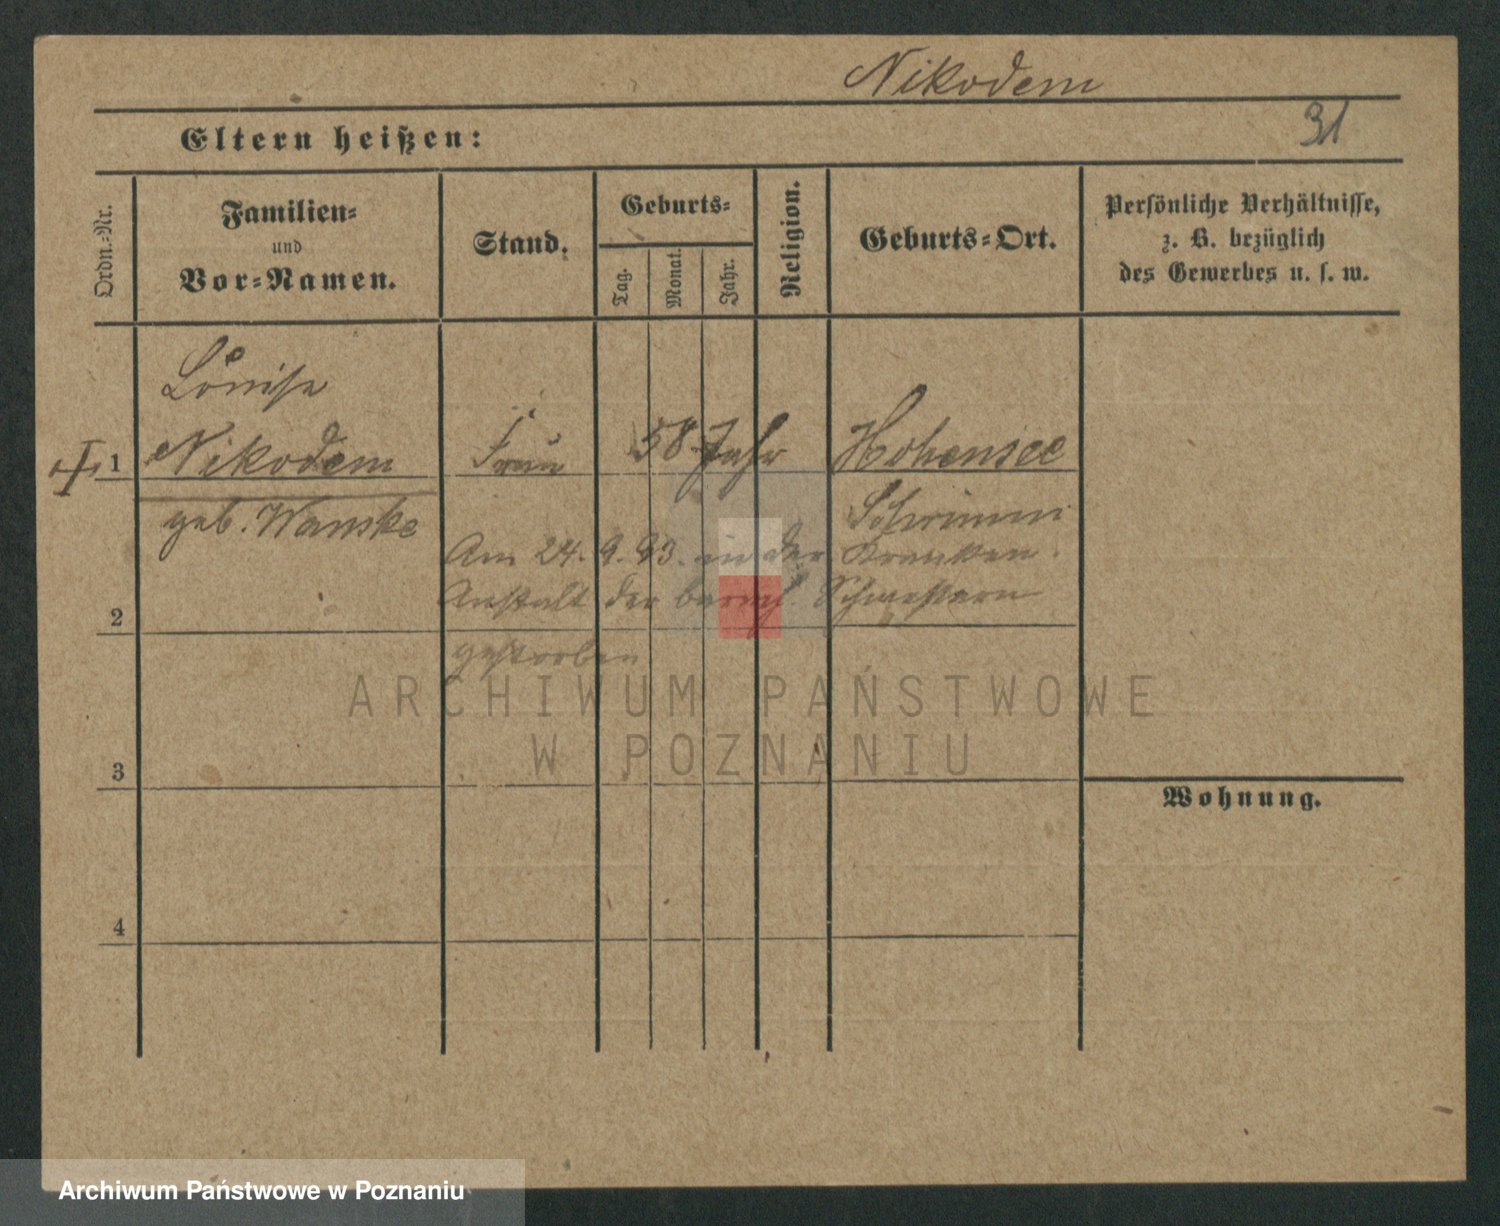 Nikodem
31
Eltern heißen:
Ordn.-Nr.
Familien-
und
Vor-Namen.
Stand.
Geburts-
Tag.
Monat.
Jahr.
Religion.
Geburts-Ort.
Persönliche Verhältnisse,
z. B. bezüglich
des Gewerbes u. s. w.
Louise
1 Nikodem Frau 58 Jahr Hohensee
geb. Wanske Schrimm
Am 24. 9. 93. in der Kranken-
Anstalt der barmh. Schwestern
2
gestorben
ARCHIWUM PAŃSTWOWE
W POZNANIU
3
Wohnung.
4
Archiwum Państwowe w Poznaniu